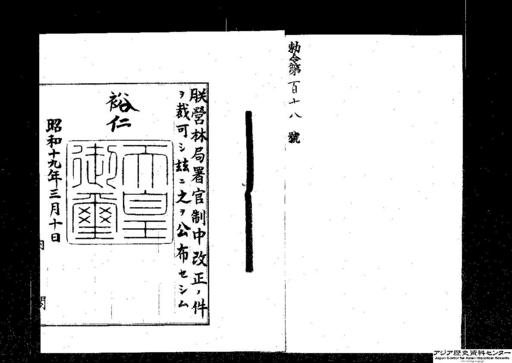 勅令第百十八號
朕營林局署官制中改正ノ件
ヲ裁可シ玆ニ之ヲ公布セシム
裕仁
天皇
御璽
昭和十九年三月十日
内閣
アジア歴史資料センター
Japan Center for Asian Historical Records